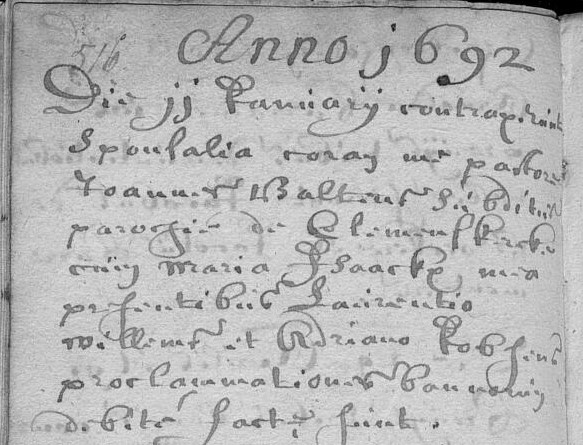 516
Anno j692
Die jj Januarij contraxerunt
Sponsalia coram me pastore
Joannes Baltens subditus
parochie de Clemenskercke
cum Maria Isaackx mea
presentibus Laurentio
Willems et Adriano Robsens
proclammationes bannorum
debite factę sunt.